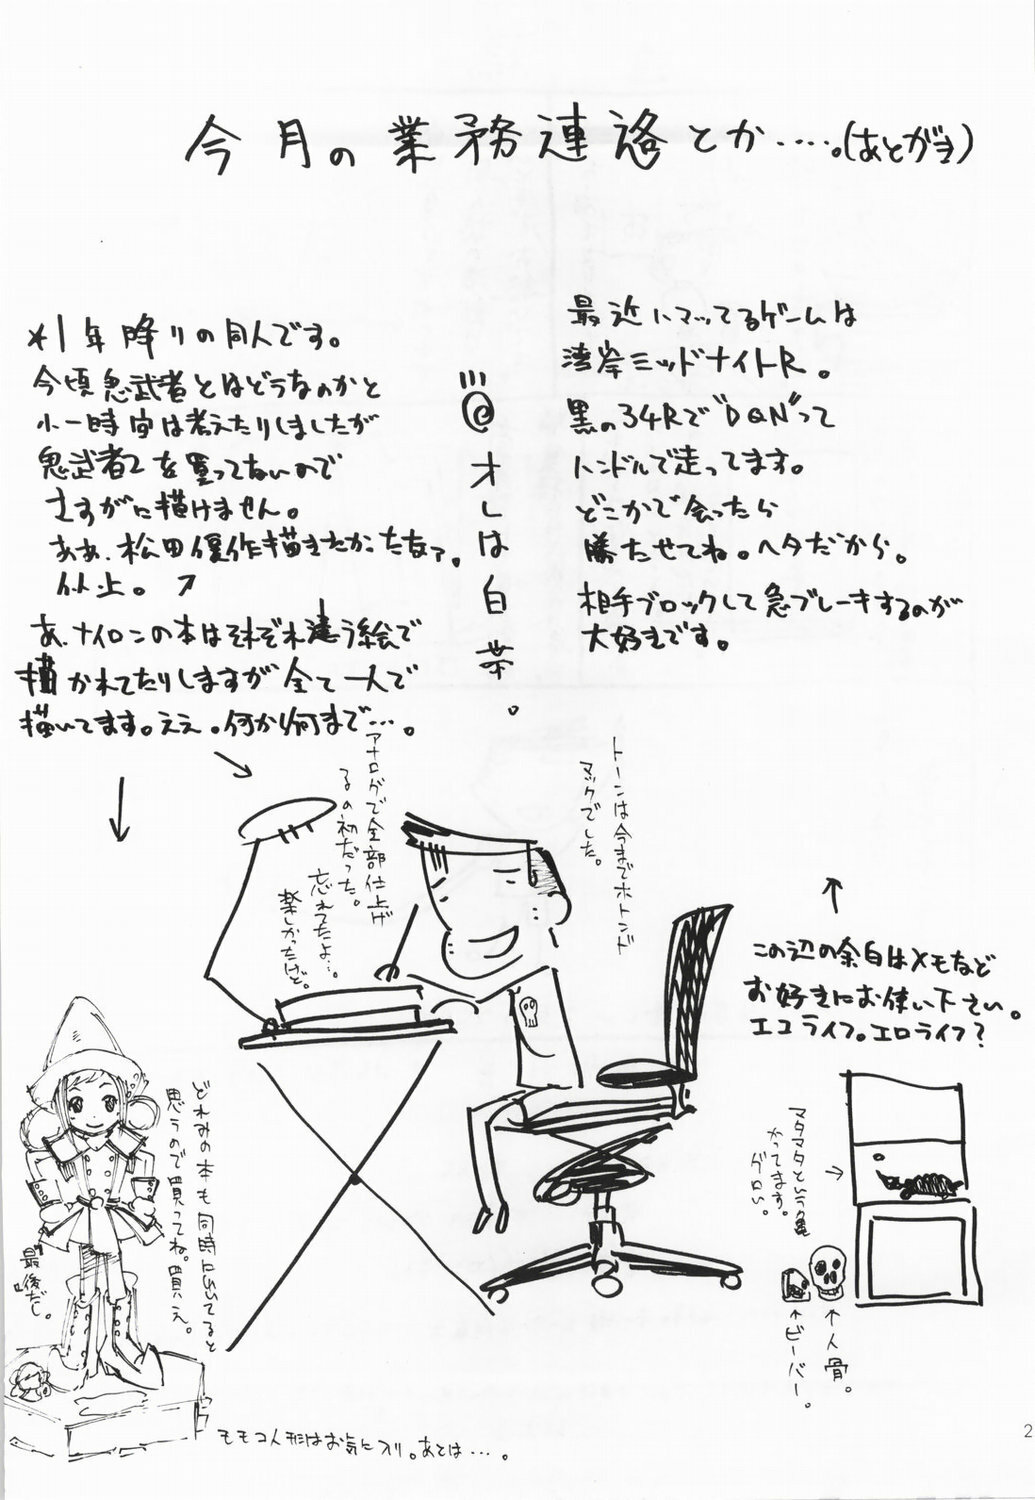 今月の業務連絡とか‥‥。(あとがき)
*1年降りの同人です。
今頃鬼武者とはどうなのかと
小一時間は考えたりしましたが
鬼武者2を買ってないので
さすがに描けません。
ああ、松田優作描きたかったなァ。
以上。↗
あ、ナイロンの本はそれぞれ違う絵で
描かれてたりしますが全て一人で
描いてます。ええ。何から何まで…。
オレは白帯。
最近ハマッてるゲームは
湾岸ミッドナイトR。
黒の34Rで“DQN”って
ハンドルで走ってます。
どこかで会ったら
勝たせてね。ヘタだから。
相手ブロックして急ブレーキするのが
大好きです。
トーンは今までホトンド
マックでした。
アナログで全部仕上げ
るの初だった。
忘れてたよ…。
楽しかったけど。
↑
この辺の余白はメモなど
お好きにお使い下さい。
エコライフ。エロライフ?
マタマタという亀
かってます。
グロい。
→
↑人骨。
↑ビーバー。
どれみの本も同時にいてると
思うので買ってね。買え。
“最後だし。
モモコ人形はお気に入り。あとは…。
2